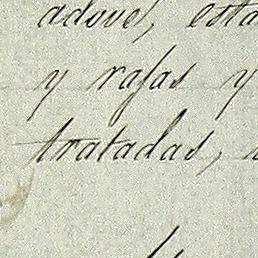 adove, esta
y rafas y
tratadas,